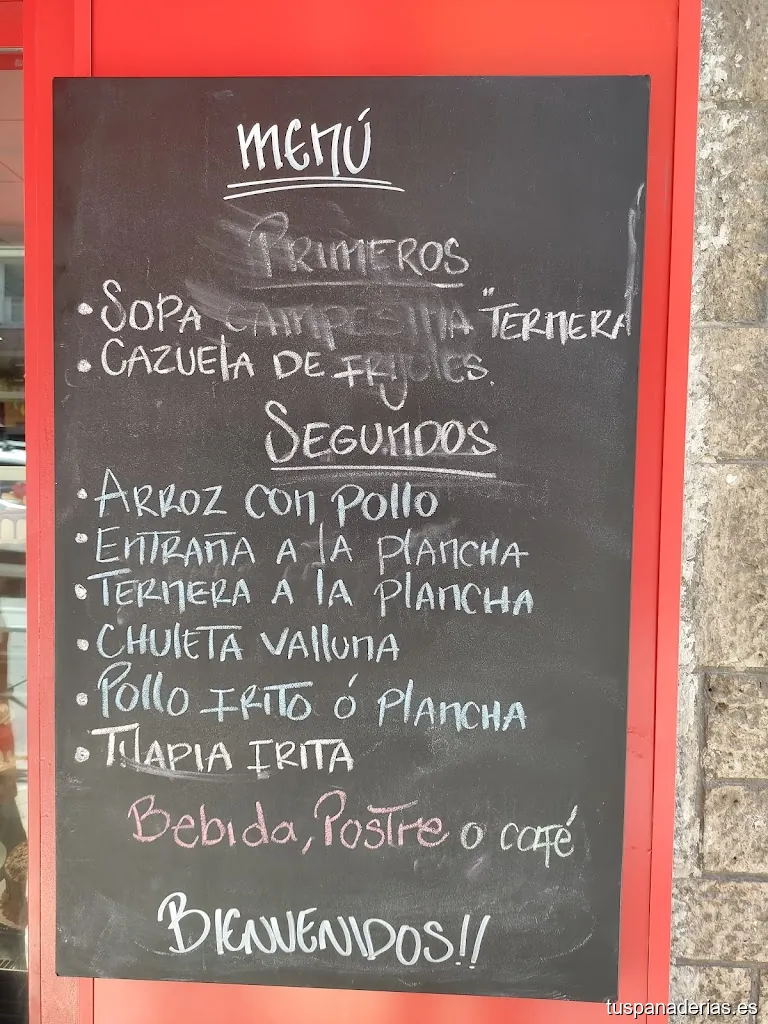 MENÚ
PRIMEROS
• SOPA CAMPESINA "TERNERA
• CAZUELA DE FRIJOLES.
SEGUNDOS
• ARROZ CON POLLO
• ENTRAÑA A LA PLANCHA
• TERNERA A LA PLANCHA
• CHULETA VALLUNA
• POLLO FRITO Ó PLANCHA
• TILAPIA FRITA
Bebida, Postre o café
BIENVENIDOS!!
tuspanaderias.es